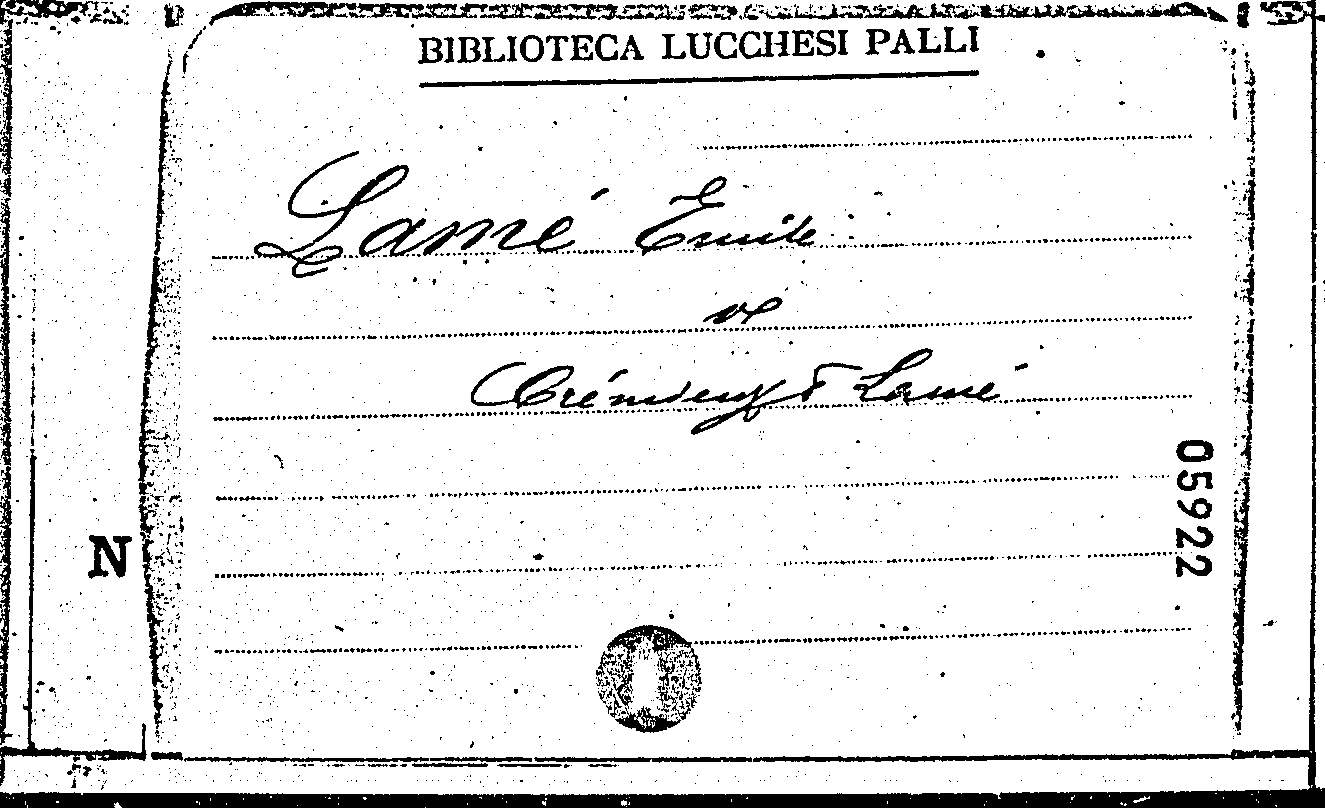 BIBLIOTECA LUCCHESI PALLI
Lamé Emile
Crémieux Lamé
05922
N